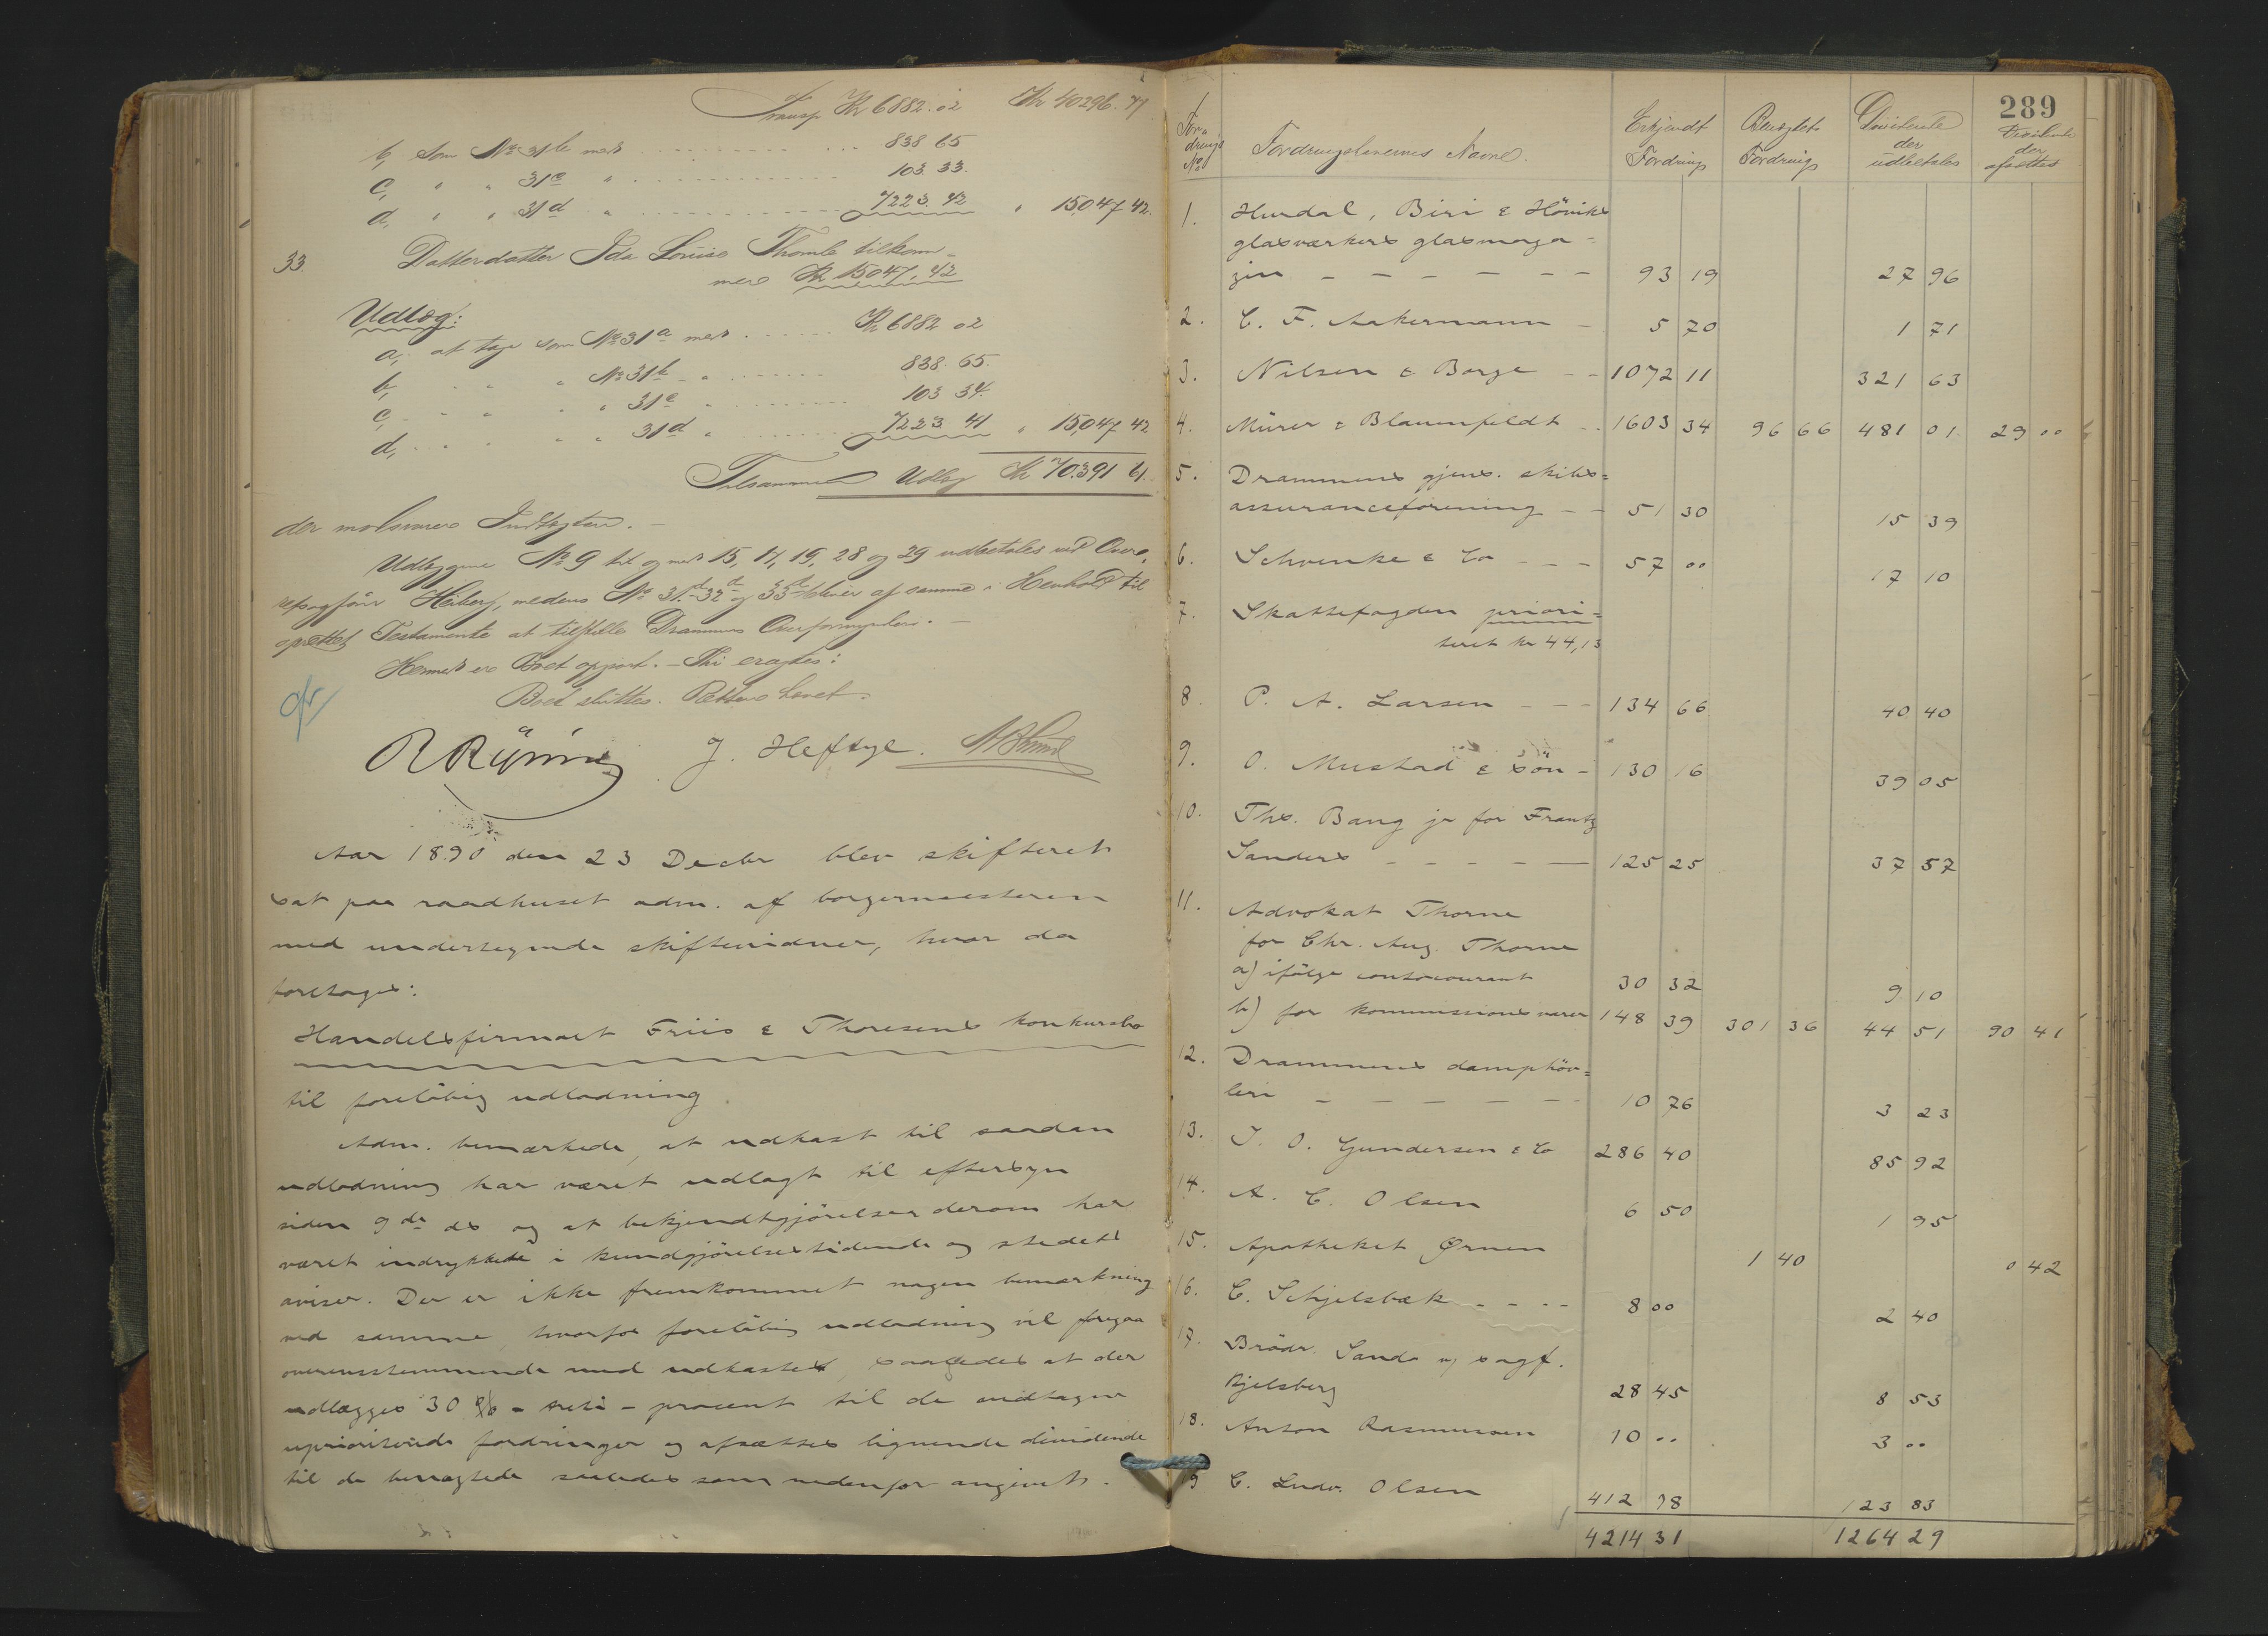 Transp. Kr 6882.02 Kr 40296.77
b, som No 31b med 838 65
c, " " 31c " 103.33.
d, " " 31d " 7223.42 " 15047 42.
33. Datterdatter Ida Louise Thomle tilkom-
mer Kr 15047,42
Udlæg:
a, at tage som No 31a med Kr 6882 02
b, " " No 31b " 838.65.
c, " " " 31c " 103 34.
d, " " " 31d " 7223 41 " 15,047 42
Tilsammen Udlæg Kr 70391 61.
der modsvarer Indtægten. –
Udlæggene No 9 til og med 15, 17, 19, 28 og 29 udbetales ved Over-
retssagfører Heiberg, medens No 31d 32d og 33d bliver af samme i Henhold til
oprettet Testamente at tilstille Drammens Overformynderi. –
Hermed er Boet opgjort. – Thi eragtes:
Boet sluttes. Retten hævet.
J. Heftye.
Aar 1890 den 23 Decbr blev skifteret
sat paa raadhuset adm. af borgermesteren
med undertegnede skiftevidner, hvor da
foretoges:
Handelsfirmaet Friis & Thoresens konkursbo
til foreløbig udlodning.
Adm. bemærkede, at udkast til saadan
udlodning har været udlagt til eftersyn
siden 9de ds og at bekjendtgjørelser derom har
været indrykkede i kundgjørelsestidende og stedets
aviser. Der er ikke fremkommet nogen bemærkning
ved samme, hvorfor foreløbig udlodning vil foregaa
overensstemmende med udkastet, saaledes at der
udlægges 30 % - treti - procent til de vedtagne
uprioriterede fordringer og afsættes lignende dividende
til de benægtede saaledes som nedenfor angivet.
289
Fordrings No
Fordringshavernes Navne.
Erkjendt Fordring
Benægtet Fordring
Dividende der udbetales
Dividende der afsættes
1. Hurdal, Biri & Høviks
glasværkers glasmaga-
zin – – – – – – 93 19 27 96
2. C. F. Aakermann – 5 70 1 71
3. Nilsen & Borge – – 1072 11 321 63
4. Mürer & Blauenfeldt – 1603 34 96 66 481 01 29 00
5. Drammens gjens. skibs=
assuranceforening – – 51 30 15 39
6. Schwenke & Co – – – 57 00 17 10
7. Skattefogden priori-
teret kr 44,13
8. P. A. Larsen – – – 134 66 40 40
9. O. Mustad & Søn – 130 16 39 05
10. Ths. Bang jr for Frantz
Sanders – – – – – 125 25 37 57
11. Advokat Thorne
for Chr. Aug. Thorne
a) ifølge contocourant 30 32 9 10
b) for kommissionsvarer 148 39 301 36 44 51 90 41
12. Drammens damphøv-
leri – – – – – – 10 76 3 23
13. J. O. Gundersen & Co 286 40 85 92
14. A. C. Olsen 6 50 1 95
15. Apotheket Ørnen 1 40 0 42
16. C. Schjelsbæk – – – – 8 00 2 40
17. Brødr. Sando v/ sagf.
Kjelsberg 28 45 8 53
18. Anton Rasmussen 10 00 3 00
19 C. Ludv. Olsen 412 78 123 83
4214 31 1264 29